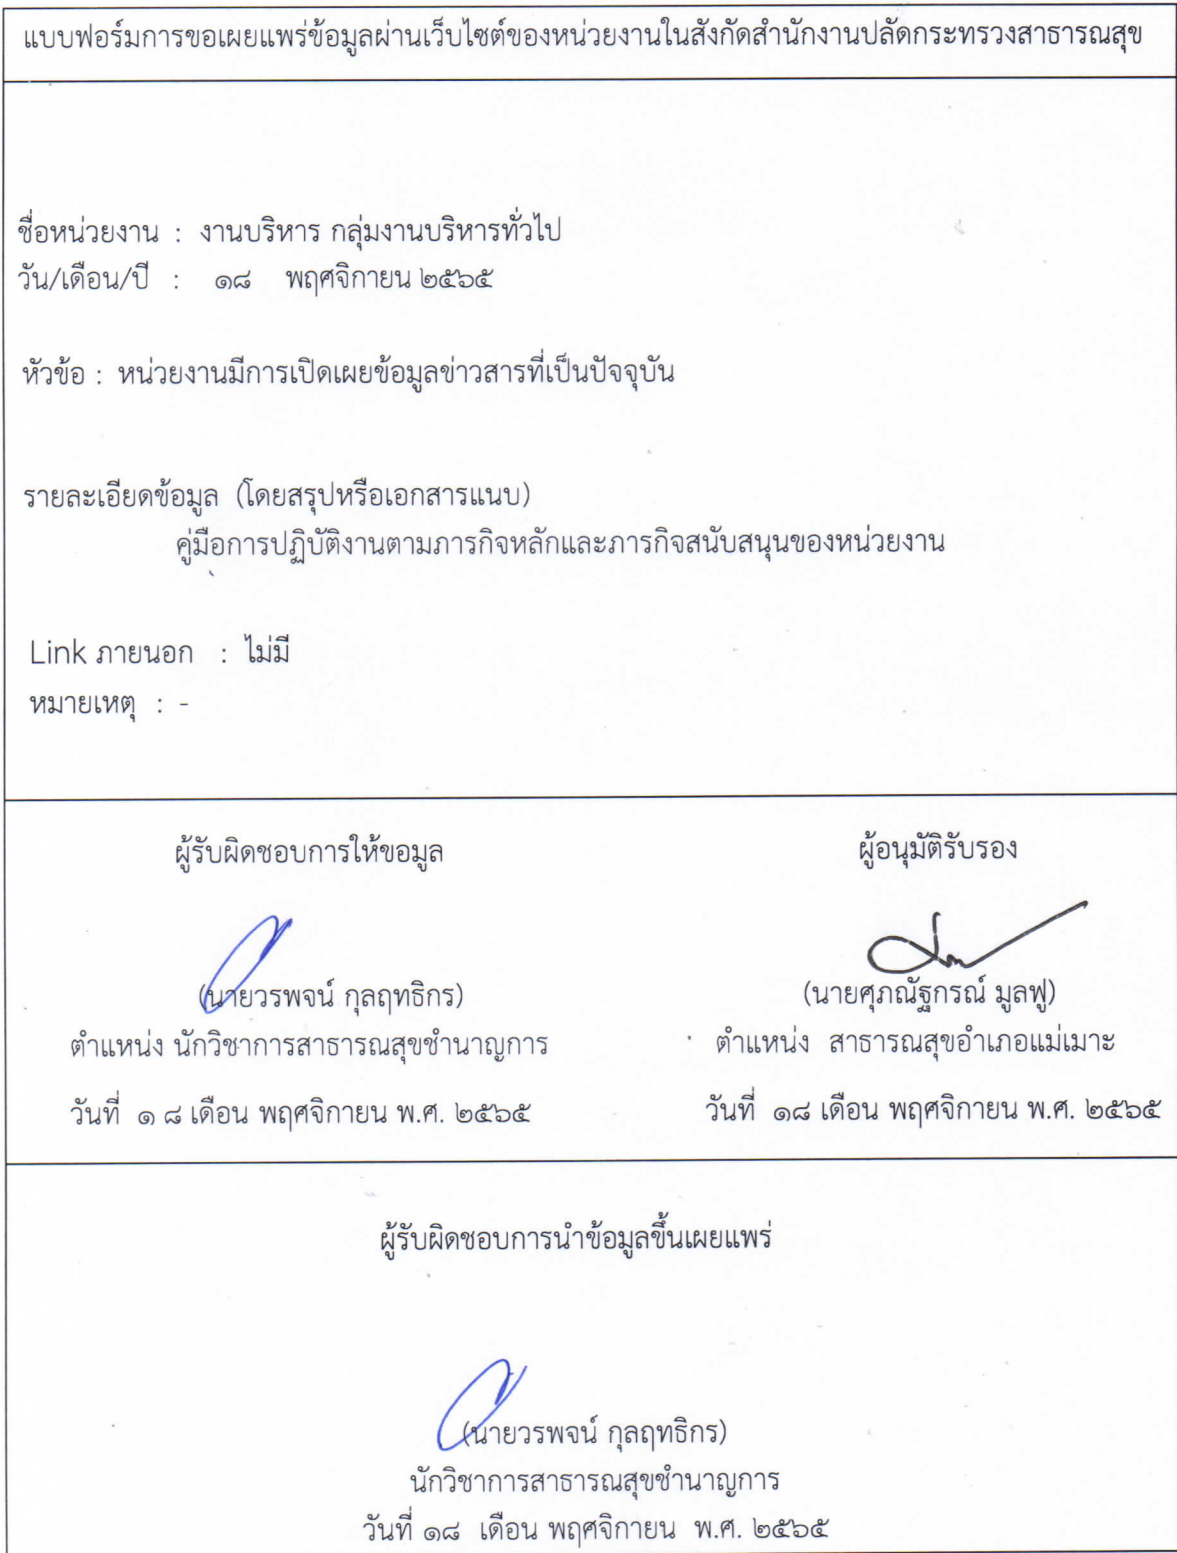 แบบฟอร์มการขอเผยแพร่ข้อมูลผ่านเว็บไซต์ของหน่วยงานในสังกัดสำนักงานปลัดกระทรวงสาธารณสุข
ชื่อหน่วยงาน : งานบริหาร กลุ่มงานบริหารทั่วไป
วัน/เดือน/ปี : ๑๘ พฤศจิกายน ๒๕๖๕
หัวข้อ : หน่วยงานมีการเปิดเผยข้อมูลข่าวสารที่เป็นปัจจุบัน
รายละเอียดข้อมูล (โดยสรุปหรือเอกสารแนบ)
คู่มือการปฏิบัติงานตามภารกิจหลักและภารกิจสนับสนุนของหน่วยงาน
Link ภายนอก : ไม่มี
หมายเหตุ : -
ผู้รับผิดชอบการให้ขอมูล
(นายวรพจน์ กุลฤทธิกร)
ตำแหน่ง นักวิชาการสาธารณสุขชำนาญการ
วันที่ ๑ ๘ เดือน พฤศจิกายน พ.ศ. ๒๕๖๕
ผู้อนุมัติรับรอง
(นายศุภณัฐกรณ์ มูลฟู)
ตำแหน่ง สาธารณสุขอำเภอแม่เมาะ
วันที่ ๑๘ เดือน พฤศจิกายน พ.ศ. ๒๕๖๕
ผู้รับผิดชอบการนำข้อมูลขึ้นเผยแพร่
(นายวรพจน์ กุลฤทธิกร)
นักวิชาการสาธารณสุขชำนาญการ
วันที่ ๑๘ เดือน พฤศจิกายน พ.ศ. ๒๕๖๕